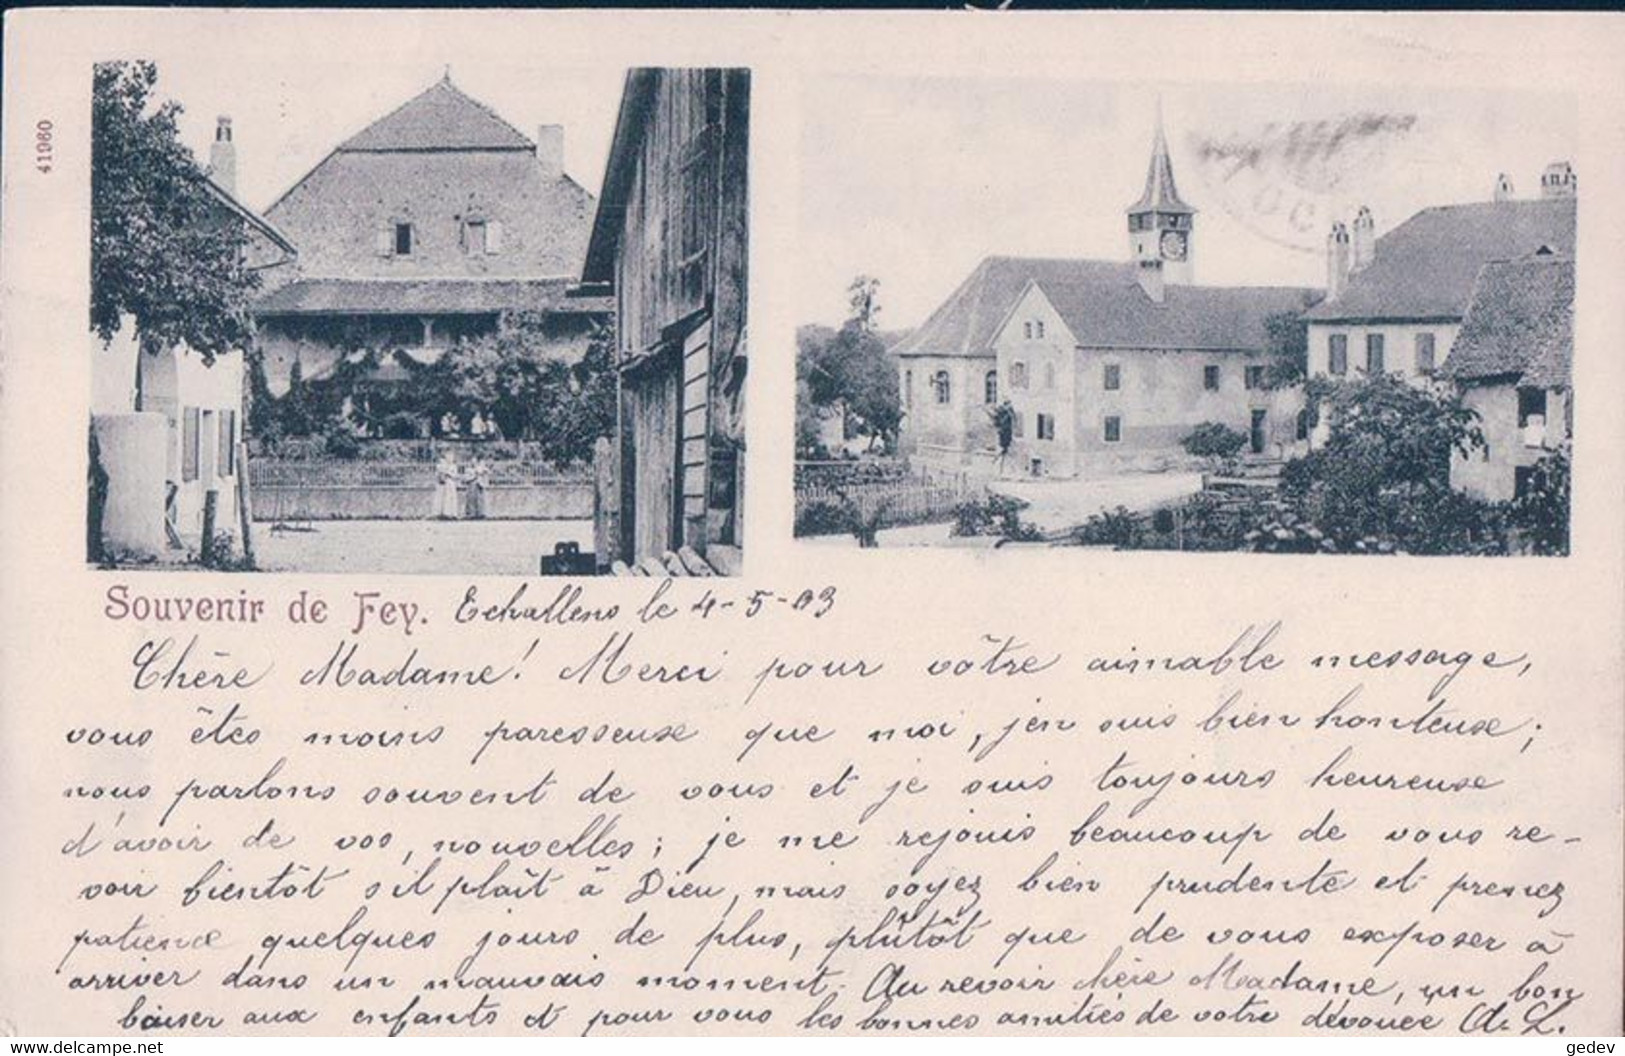 41960
Souvenir de Fey. Echallens le 4-5-03
Chère Madame! Merci pour vôtre aimable message,
vous êtes moins paresseuse que moi, j'en suis bien honteuse;
nous parlons souvent de vous et je suis toujours heureuse
d'avoir de vos, nouvelles; je me rejouis beaucoup de vous re-
voir bientôt s'il plaît à Dieu, mais soyez bien prudente et prenez
patience quelques jours de plus, plûtôt que de vous exposer à
arriver dans un mauvais moment. Au revoir chère Madame, un bon
baiser aux enfants et pour vous les bonnes amitiés de votre dévouée A. L.
gedev